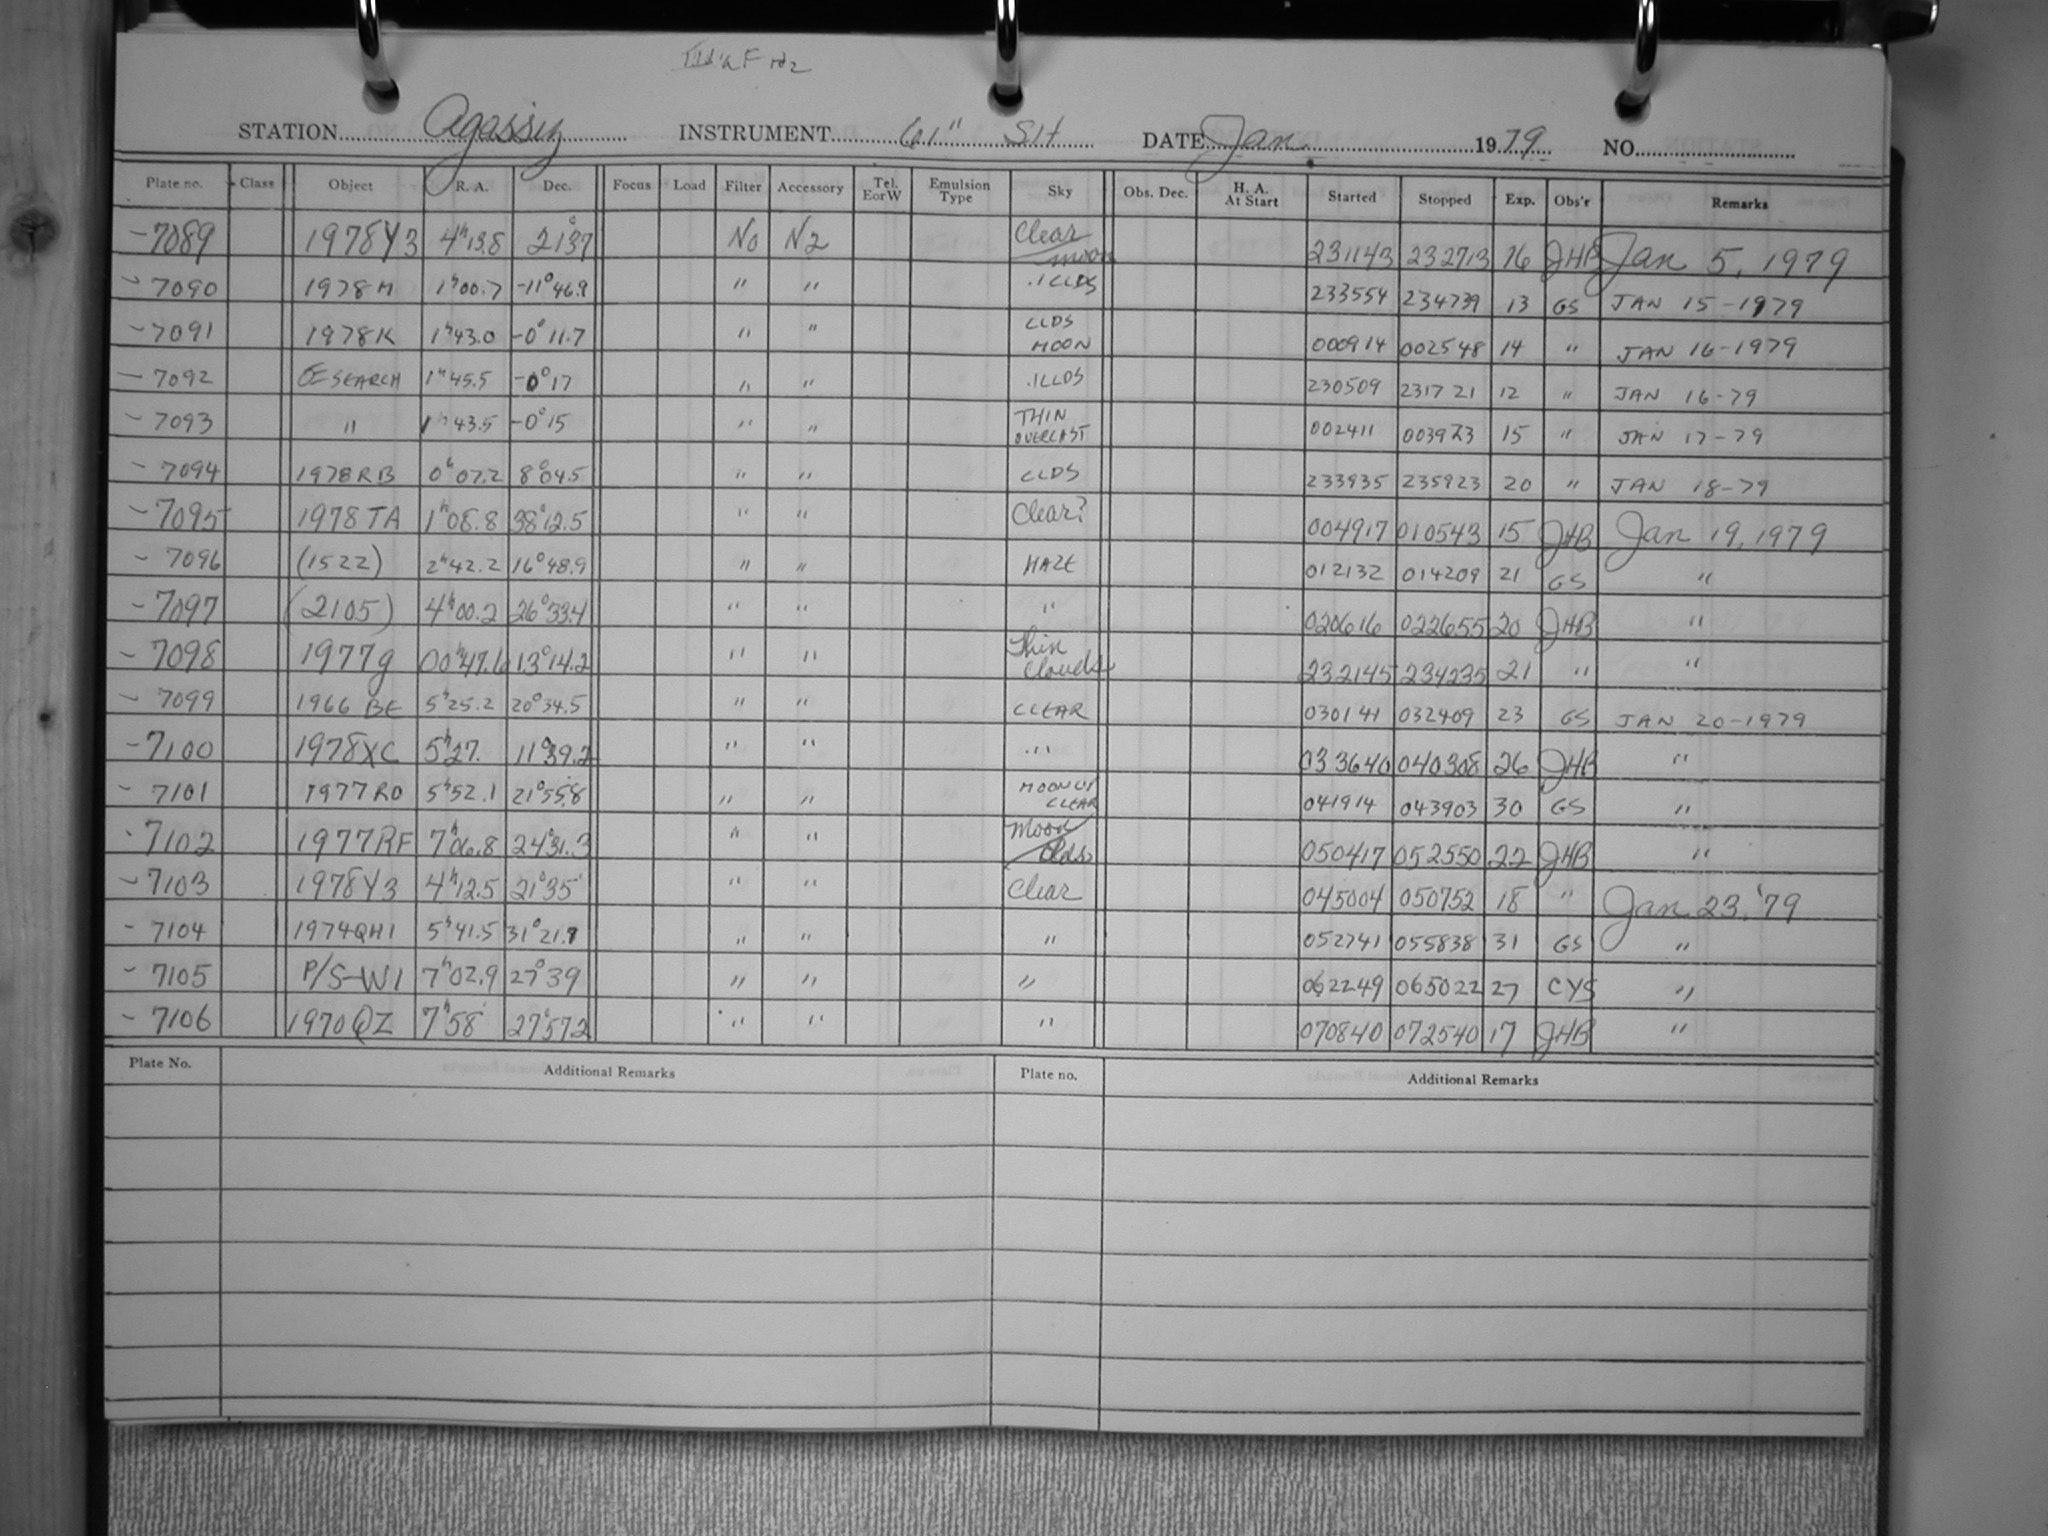 STATION Agassiz INSTRUMENT 61" SH DATE Jan. 1979 NO.
Plate no. Class Object R. A. Dec. Focus Load Filter Accessory Tel. EorW Emulsion Type Sky Obs. Dec. H. A. At Start Started Stopped Exp. Obs'r Remarks
-7089 1978Y3 4h13.8 21°37 No N2 Clear moon 231143 232713 16 JHB Jan 5, 1979
-7090 1978H 1h00.7 -11°46.9 " " .1 CLDS 233554 234739 13 GS JAN 15-1979
-7091 1978K 1h43.0 -0°11.7 " " CLDS MOON 000914 002548 14 " JAN 16-1979
-7092 SEARCH 1h45.5 -0°17 " " .1CLDS 230509 231721 12 " JAN 16-79
-7093 " 1h43.5 -0°15 " " THIN OVERCAST 002411 003923 15 " JAN 17-79
-7094 1978RB 0h07.2 8°04.5 " " CLDS 233935 235923 20 " JAN 18-79
-7095 1978TA 1h08.8 38°12.5 " " Clear? 004917 010543 15 JHB Jan 19, 1979
-7096 (1522) 2h42.2 16°48.9 " " HAZE 012132 014209 21 GS "
-7097 (2105) 4h00.2 26°33.4 " " " 020616 022655 20 JHB "
-7098 1977g 00h47.6 13°14.2 " " Thin clouds 232145 234235 21 " "
-7099 1966 BE 5h25.2 20°34.5 " " CLEAR 030141 032409 23 GS JAN 20-1979
-7100 1978XC 5h27. 11°39.2 " " " 033640 040308 26 JHB "
-7101 1977RO 5h52.1 21°55.8 " " CLEAR 041914 043903 30 GS "
-7102 1977RF 7h06.8 24°31.3 " " Moon Clds 050417 052550 22 JHB "
-7103 1978Y3 4h12.5 21°35' " " Clear 045004 050752 18 " Jan 23, '79
-7104 1974QH1 5h41.5 31°21.9 " " " 052741 055838 31 GS "
-7105 P/S-W1 7h02.9 27°39 " " " 062249 065022 27 CYS "
-7106 1970QZ 7h58 27°57.2 " " " 070840 072540 17 JHB "
Plate No. Additional Remarks Plate no. Additional Remarks